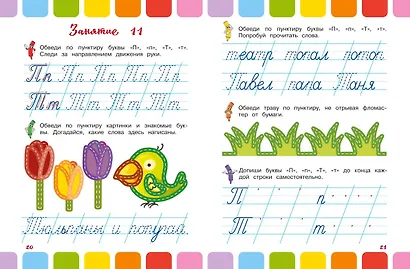 Занятие 11
Обведи по пунктиру буквы «П», «п», «Т», «т».
Следи за направлением движения руки.
Пп Пп Пп Пп
Тт Тт Тт Тт
Обведи по пунктиру картинки и знакомые бук-
вы. Догадайся, какие слова здесь написаны.
Тюльпаны и попугай.
20
Обведи по пунктиру буквы «П», «п», «Т», «т».
Попробуй прочитать слова.
театр топал потоп
Павел папа Таня
Обведи траву по пунктиру, не отрывая фломас-
тер от бумаги.
Допиши буквы «П», «п», «Т», «т» до конца каж-
дой строки самостоятельно.
П п
Т т
21